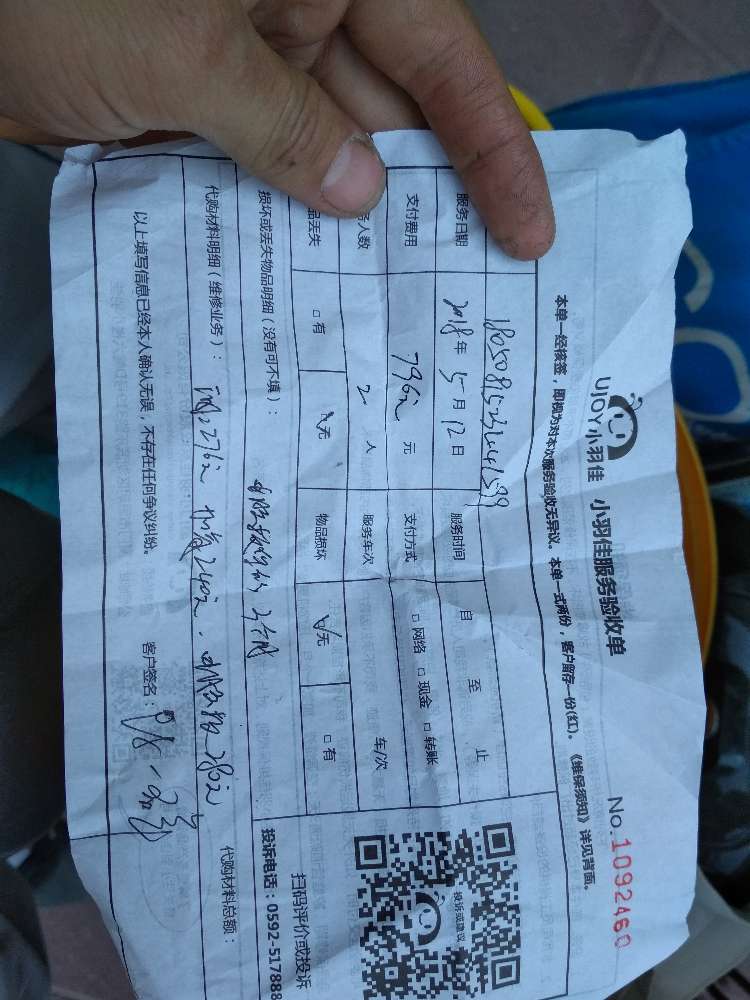 UJOY小羽佳 小羽佳服务验收单
No.1092460
本单一经核签，即视为对本次服务验收无异议。本单一式两份，客户留存一份(红)。《维保须知》详见背面。
服务日期 2018年 5月 12日 服务时间 自 至 止
支付费用 796 元 支付方式 □ 网络 □ 现金 □ 转账
人数 2 人 服务车次 车/次
品丢失 □ 有 无 物品损坏 无 □ 有
损坏或丢失物品明细（没有可不填）：
代购材料明细（维修业务）： 276元 240元 280元
代购材料总额：
以上填写信息已经本人确认无误，不存在任何争议纠纷。 客户签名：
投诉或建议
扫码评价或投诉
投诉电话：0592-517888